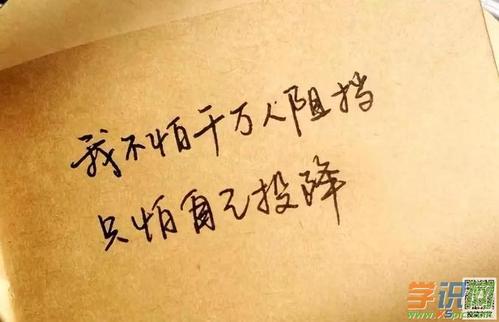 我不怕千万人阻挡
只怕自己投降
学识网